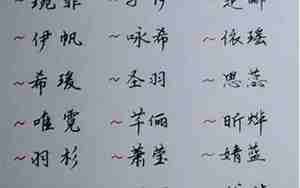 ~伊帆 ~咏希 ~依瑶
~希瑗 ~圣羽 ~思蕊
~唯霓 ~芊俪 ~昕烨
~羽杉 ~萧莹 ~婧蓝